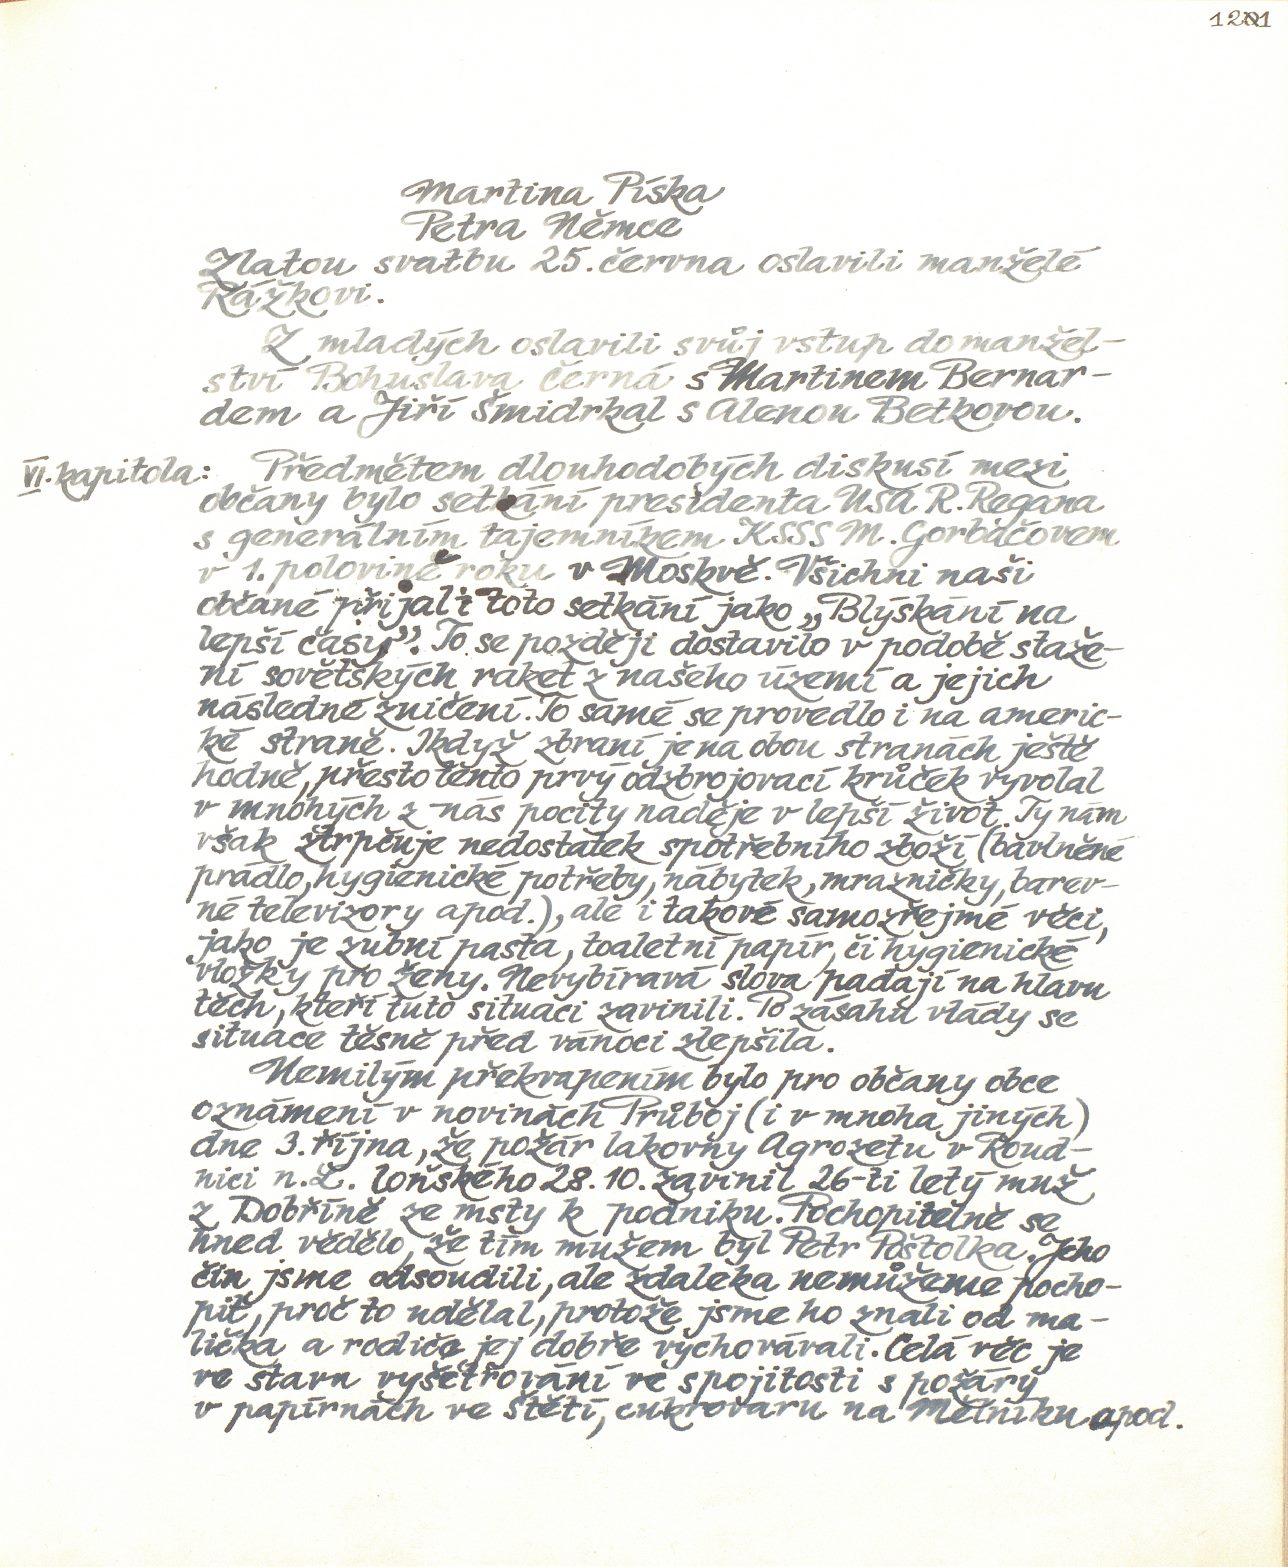 1201
Martina Píška
Petra Němce
Zlatou svatbu 25. června oslavili manželé
Rážkovi.
Z mladých oslavili svůj vstup do manžel-
ství Bohuslava Černá s Martinem Bernar-
dem a Jiří Šmidrkal s Alenou Betkovou.
VI. kapitola: Předmětem dlouhodobých diskusí mezi
občany bylo setkání presidenta USA R. Regana
s generálním tajemníkem KSSS M. Gorbačovem
v 1. polovině roku v Moskvě. Všichni naši
občané přijali toto setkání jako „Blýskání na
lepší časy". To se později dostavilo v podobě staže-
ní sovětských raket z našeho území a jejich
následné zničení. To samé se provedlo i na americ-
ké straně. Ikdyž zbraní je na obou stranách ještě
hodně, přesto tento prvý odzbrojovací krůček vyvolal
v mnohých z nás pocity naděje v lepší život. Ty nám
však ztrpčuje nedostatek spotřebního zboží (bavlněné
prádlo, hygienické potřeby, nábytek, mrazničky, barev-
né televizory apod.), ale i takové samozřejmé věci,
jako je zubní pasta, toaletní papír, či hygienické
vložky pro ženy. Nevybíravá slova padají na hlavu
těch, kteří tuto situaci zavinili. Po zásahu vlády se
situace těsně před vánoci zlepšila.
Nemilým překvapením bylo pro občany obce
oznámení v novinách Průboj (i v mnoha jiných)
dne 3. října, že požár lakovny Agrozetu v Roud-
nici n. L. loňského 28. 10. zavinil 26-ti letý muž
z Dobříně ze msty k podniku. Pochopitelně se
hned vědělo, že tím mužem byl Petr Poštolka. Jeho
čin jsme odsoudili, ale zdaleka nemůžeme pocho-
pit, proč to udělal, protože jsme ho znali od ma-
lička a rodiče jej dobře vychovávali. Celá věc je
ve stavu vyšetřování ve spojitosti s požáry
v papírnách ve Štětí, cukrovaru na Mělníku apod.